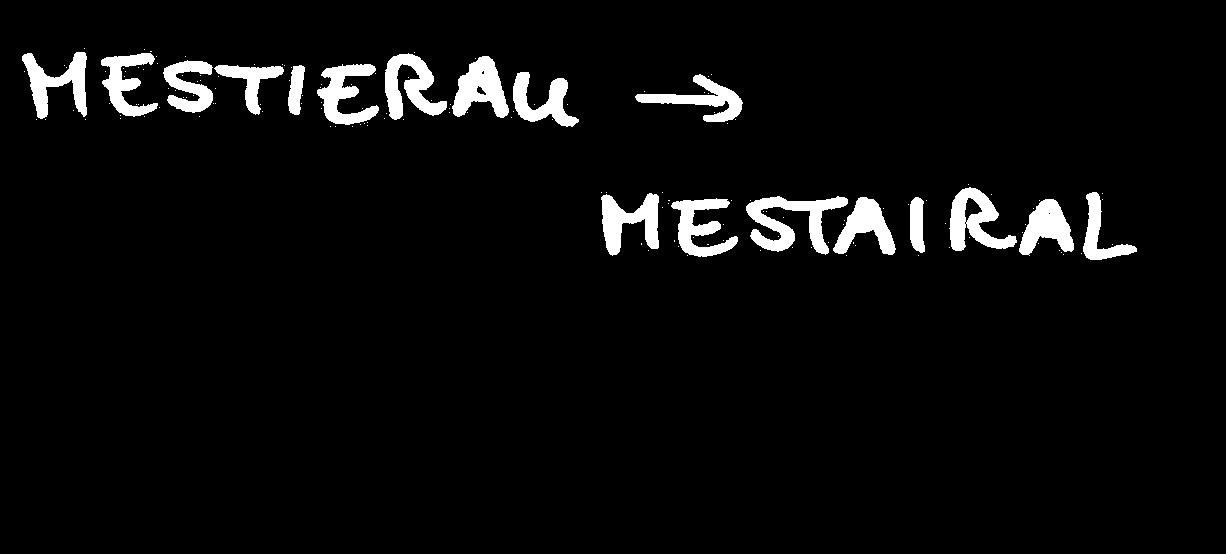 MESTIERAU →
MESTAIRAL